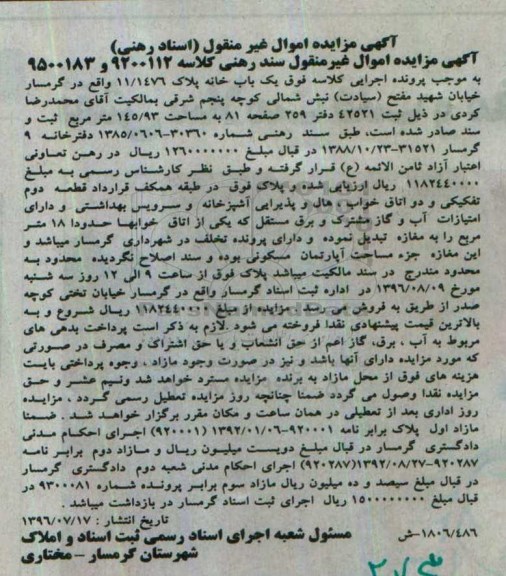 آگهی مزایده اموال غیر منقول (اسناد رهنی)
آگهی مزایده اموال غیرمنقول سند رهنی کلاسه ۹۲۰۰۱۱۲ و ۹۵۰۰۱۸۳
به موجب پرونده اجرایی کلاسه فوق یک باب خانه پلاک ۱۱/۱۴۷۶ واقع در گرمسار
خیابان شهید مفتح (سیادت) نبش شمالی کوچه پنجم شرقی بمالکیت آقای محمدرضا
کردی در ذیل ثبت ۴۲۵۲۱ دفتر ۲۵۹ صفحه ۸۱ به مساحت ۱۴۵/۹۳ متر مربع ثبت و
سند صادر شده است، طبق سند رهنی شماره ۳۰۳۶۰-۱۳۸۵/۰۶۰۶ دفترخانه ۹
گرمسار ۳۱۵۲۱-۱۳۸۸/۱۰/۲۳ در قبال مبلغ ۱۲۶۰۰۰۰۰۰۰ ریال در رهن تعاونی
اعتبار آزاد ثامن الائمه (ع) قرار گرفته و طبق نظر کارشناس رسمی به مبلغ
۱۱۸۲۴۴۰۰۰۰ ریال ارزیابی شده و پلاک فوق در طبقه همکف قرارداد قطعه دوم
تفکیکی و دو اتاق خواب، هال و پذیرایی آشپزخانه و سرویس بهداشتی و دارای
امتیازات آب و گاز مشترک و برق مستقل که یکی از اتاق خوابها حدودا ۱۸ متر
مربع را به مغازه تبدیل نموده و دارای پرونده تخلف در شهرداری گرمسار میباشد و
این مغازه جزء مساحت آپارتمان مسکونی بوده و سند اصلاح نگردیده محدود به
محدود مندرج در سند مالکیت میباشد پلاک فوق از ساعت ۹ الی ۱۲ روز سه شنبه
مورخ ۱۳۹۶/۰۸/۰۹ در اداره ثبت اسناد گرمسار واقع در گرمسار خیابان تختی کوچه
صدر از طریق به فروش می رسد. مزایده از مبلغ ۱۱۸۲۴۴۰۰۰۰ ریال شروع و به
بالاترین قیمت پیشنهادی نقدا فروخته می شود .لازم به ذکر است پرداخت بدهی های
مربوط به آب ، برق، گاز اعم از حق انشعاب و یا حق اشتراک و مصرف در صورتی
که مورد مزایده دارای آنها باشد و نیز در صورت وجود مازاد ، وجوه پرداختی بابت
هزینه های فوق از محل مازاد به برنده مزایده مسترد خواهد شد ونیم عشر و حق
مزایده نقدا وصول می گردد ضمنا چنانچه روز مزایده تعطیل رسمی گردد ، مزایده
روز اداری بعد از تعطیلی در همان ساعت و مکان مقرر برگزار خواهد شد . ضمنا
مازاد اول پلاک برابر نامه ۹۲۰۰۰۱-۱۳۹۲/۰۱/۰۶ (۹۲۰۰۰۱) اجرای احکام مدنی
دادگستری گرمسار در قبال مبلغ دویست میلیون ریال و مازاد دوم برابر نامه
۹۲۰۲۸۷-۱۳۹۲/۰۸/۲۷(۹۲۰۲۸۷) اجرای احکام مدنی شعبه دوم دادگستری گرمسار
در قبال مبلغ سیصد و ده میلیون ریال مازاد سوم برابر پرونده شماره ۹۳۰۰۰۸۱ در
قبال مبلغ ۱۵۰۰۰۰۰۰۰۰ ریال اجرای ثبت اسناد گرمسار در بازداشت میباشد .
تاریخ انتشار : ۱۳۹۶/۰۷/۱۷
۱۸۰۶/۴۸۶-ش مسئول شعبه اجرای اسناد رسمی ثبت اسناد و املاک
شهرستان گرمسار – مختاری